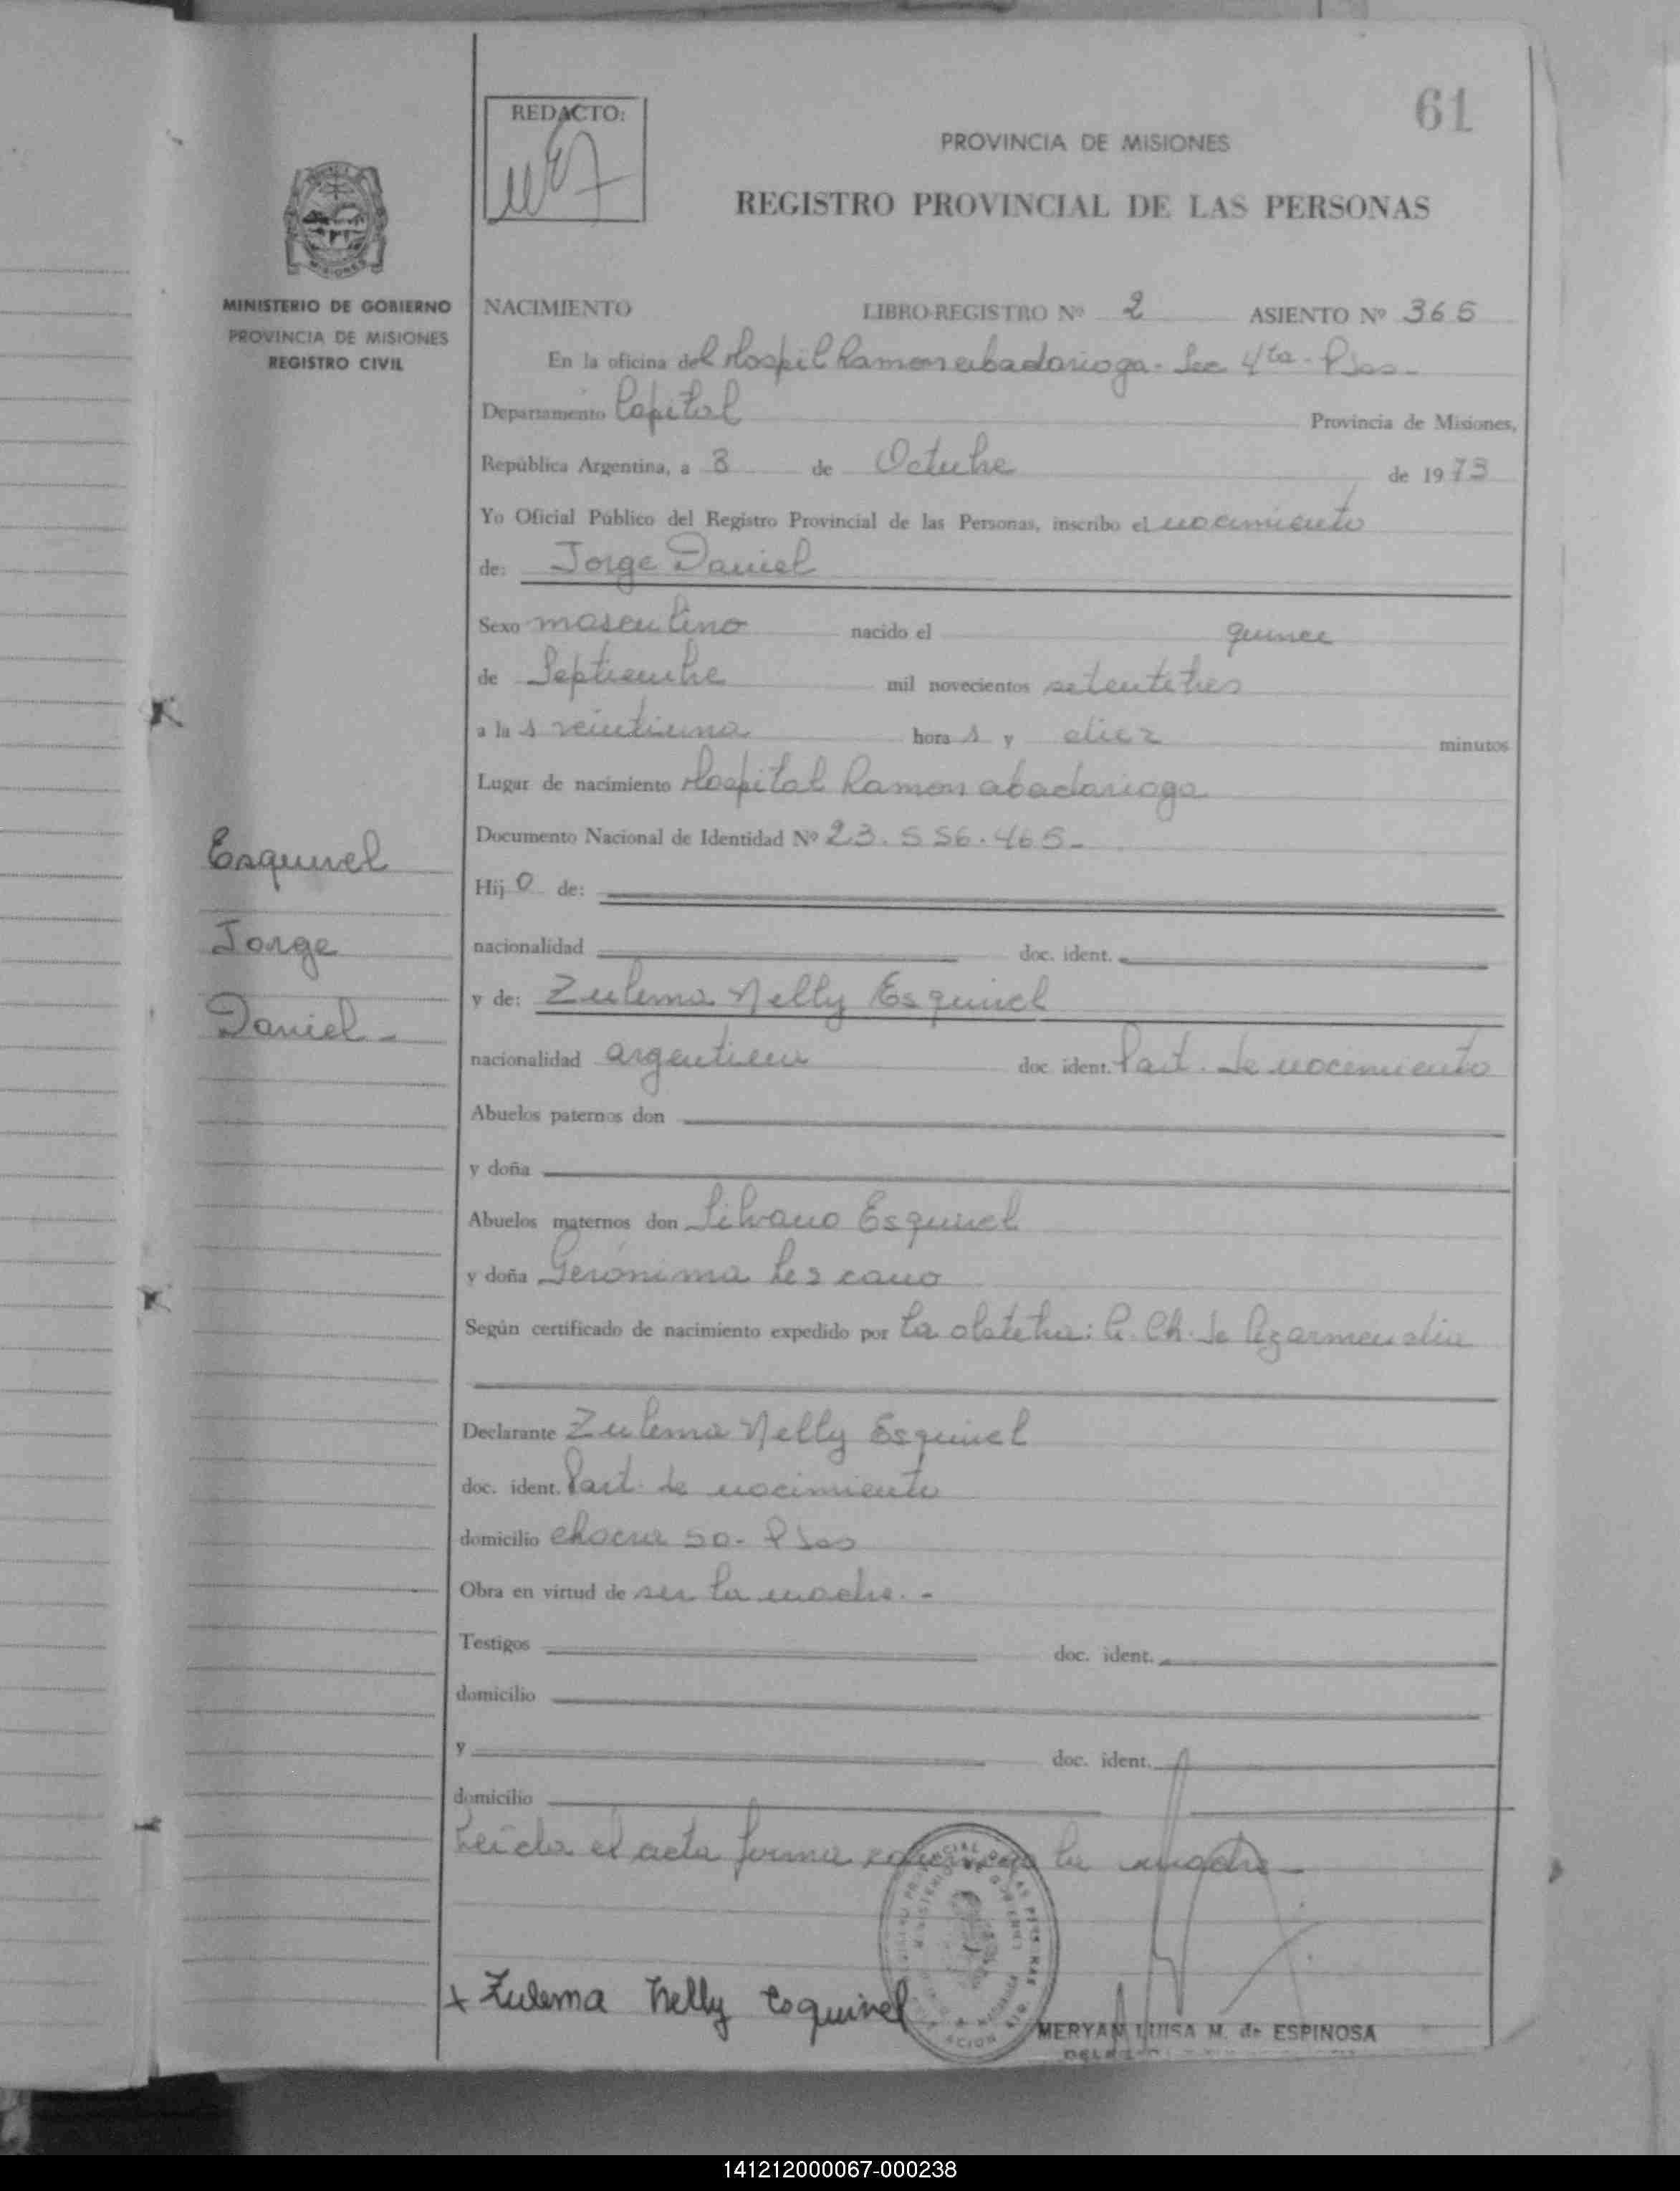 61
REDACTO:
PROVINCIA DE MISIONES
REGISTRO PROVINCIAL DE LAS PERSONAS
MISIONES
MINISTERIO DE GOBIERNO
PROVINCIA DE MISIONES
REGISTRO CIVIL
NACIMIENTO LIBRO-REGISTRO Nº 2 ASIENTO Nº 365
En la oficina del Hospil Ramon abadarioga - Sec 4ta - Pdas -
Departamento Capital Provincia de Misiones,
República Argentina, a 3 de Octubre de 1973
Yo Oficial Público del Registro Provincial de las Personas, inscribo el nacimiento
de: Jorge Daniel
Sexo masculino nacido el quince
de Septiembre mil novecientos setentitres
a la s veintiuna hora s y diez minutos
Lugar de nacimiento Hospital Ramon abadarioga
Documento Nacional de Identidad Nº 23.556.465-
Esquivel
Jorge
Daniel -
Hij o de:
nacionalidad doc. ident.
y de: Zulema Nelly Esquivel
nacionalidad argentina doc. ident. Part. de nacimiento
Abuelos paternos don
y doña
Abuelos maternos don Silvano Esquivel
y doña Gerónima Lezcano
Según certificado de nacimiento expedido por La obstetra: C. Ch. de Azarmendia
Declarante Zulema Nelly Esquivel
doc. ident. Part. de nacimiento
domicilio chacra 50 - Pdas
Obra en virtud de ser la madre. -
Testigos doc. ident.
domicilio
y doc. ident.
domicilio
Leída el acta firma la madre
x Zulema Nelly Esquivel
MERYAM LUISA M. de ESPINOSA
141212000067-000238